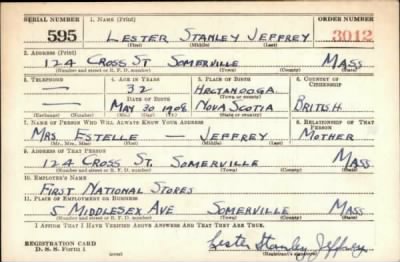 SERIAL NUMBER 1. NAME (Print) ORDER NUMBER
595 LESTER STANLEY JEFFREY 3012
(First) (Middle) (Last)
2. ADDRESS (Print)
124 CROSS ST SOMERVILLE MASS
(Number and street or R. F. D. number) (Town) (County) (State)
3. TELEPHONE 4. AGE IN YEARS 5. PLACE OF BIRTH 6. COUNTRY OF CITIZENSHIP
— 32 HECTANOOGA
DATE OF BIRTH
— MAY 30 1908 NOVA SCOTIA BRITISH
(Exchange) (Number) (Mo.) (Day) (Yr.) (State or country)
7. NAME OF PERSON WHO WILL ALWAYS KNOW YOUR ADDRESS 8. RELATIONSHIP OF THAT PERSON
MRS. ESTELLE — JEFFREY MOTHER
(Mr., Mrs., Miss) (First) (Middle) (Last)
9. ADDRESS OF THAT PERSON
124 CROSS ST. SOMERVILLE MASS
(Number and street or R. F. D. number) (Town) (County) (State)
10. EMPLOYER'S NAME
FIRST NATIONAL STORES
11. PLACE OF EMPLOYMENT OR BUSINESS
5 MIDDLESEX AVE SOMERVILLE MASS
(Number and street or R. F. D. number) (Town) (County) (State)
I AFFIRM THAT I HAVE VERIFIED ABOVE ANSWERS AND THAT THEY ARE TRUE.
REGISTRATION CARD
D. S. S. Form 1 (over) Lester Stanley Jeffrey
(Registrant's signature)